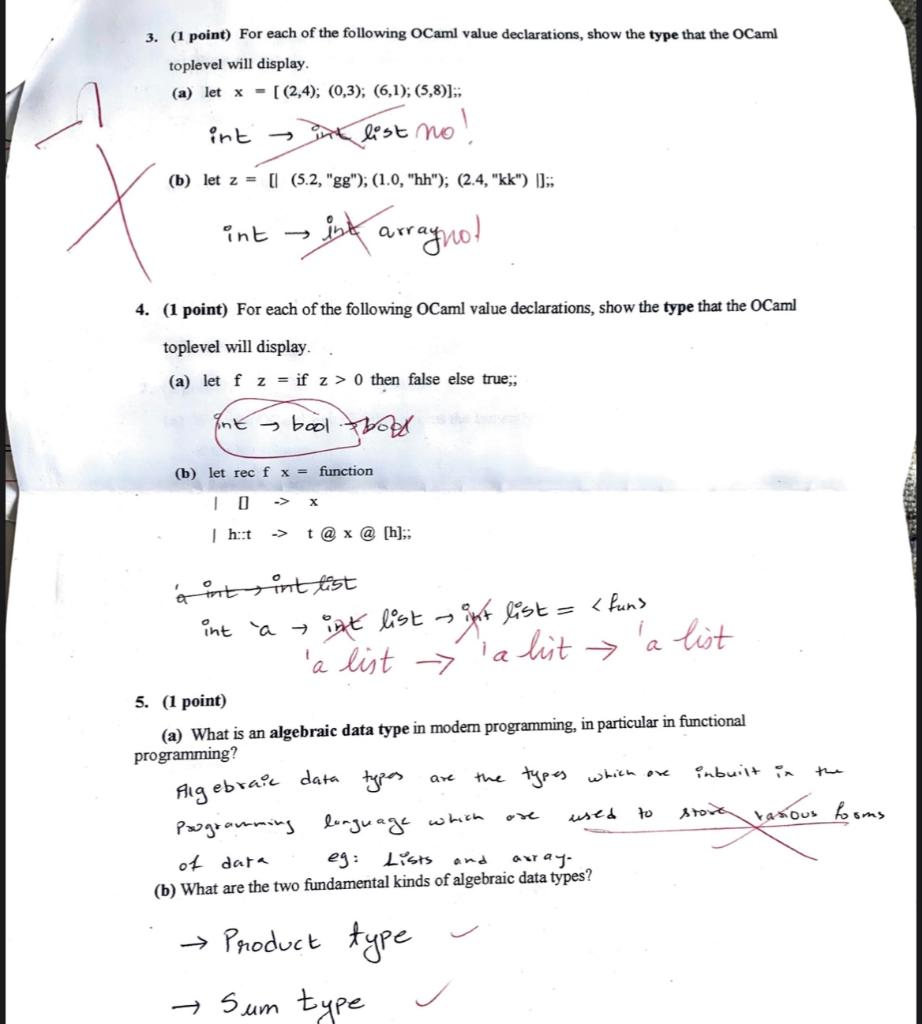 3. (1 point) For each of the following OCaml value declarations, show the type that the OCaml
toplevel will display.
(a) let x = [ (2,4); (0,3); (6,1); (5,8)];;
-1
int → int list no!
(b) let z = [| (5.2, "gg"); (1.0, "hh"); (2.4, "kk") |];;
int → int array no!
4. (1 point) For each of the following OCaml value declarations, show the type that the OCaml
toplevel will display.
(a) let f z = if z > 0 then false else true;;
int → bool → bool
(b) let rec f x = function
| [] -> x
| h::t -> t @ x @ [h];;
'a int → int list
int 'a → int list → int list = <fun>
'a list → 'a list → 'a list
5. (1 point)
(a) What is an algebraic data type in modern programming, in particular in functional
programming?
Algebraic data types are the types which are inbuilt in the
Programming language which are used to store various forms
of data eg: Lists and array.
(b) What are the two fundamental kinds of algebraic data types?
→ Product type ✓
→ Sum type ✓